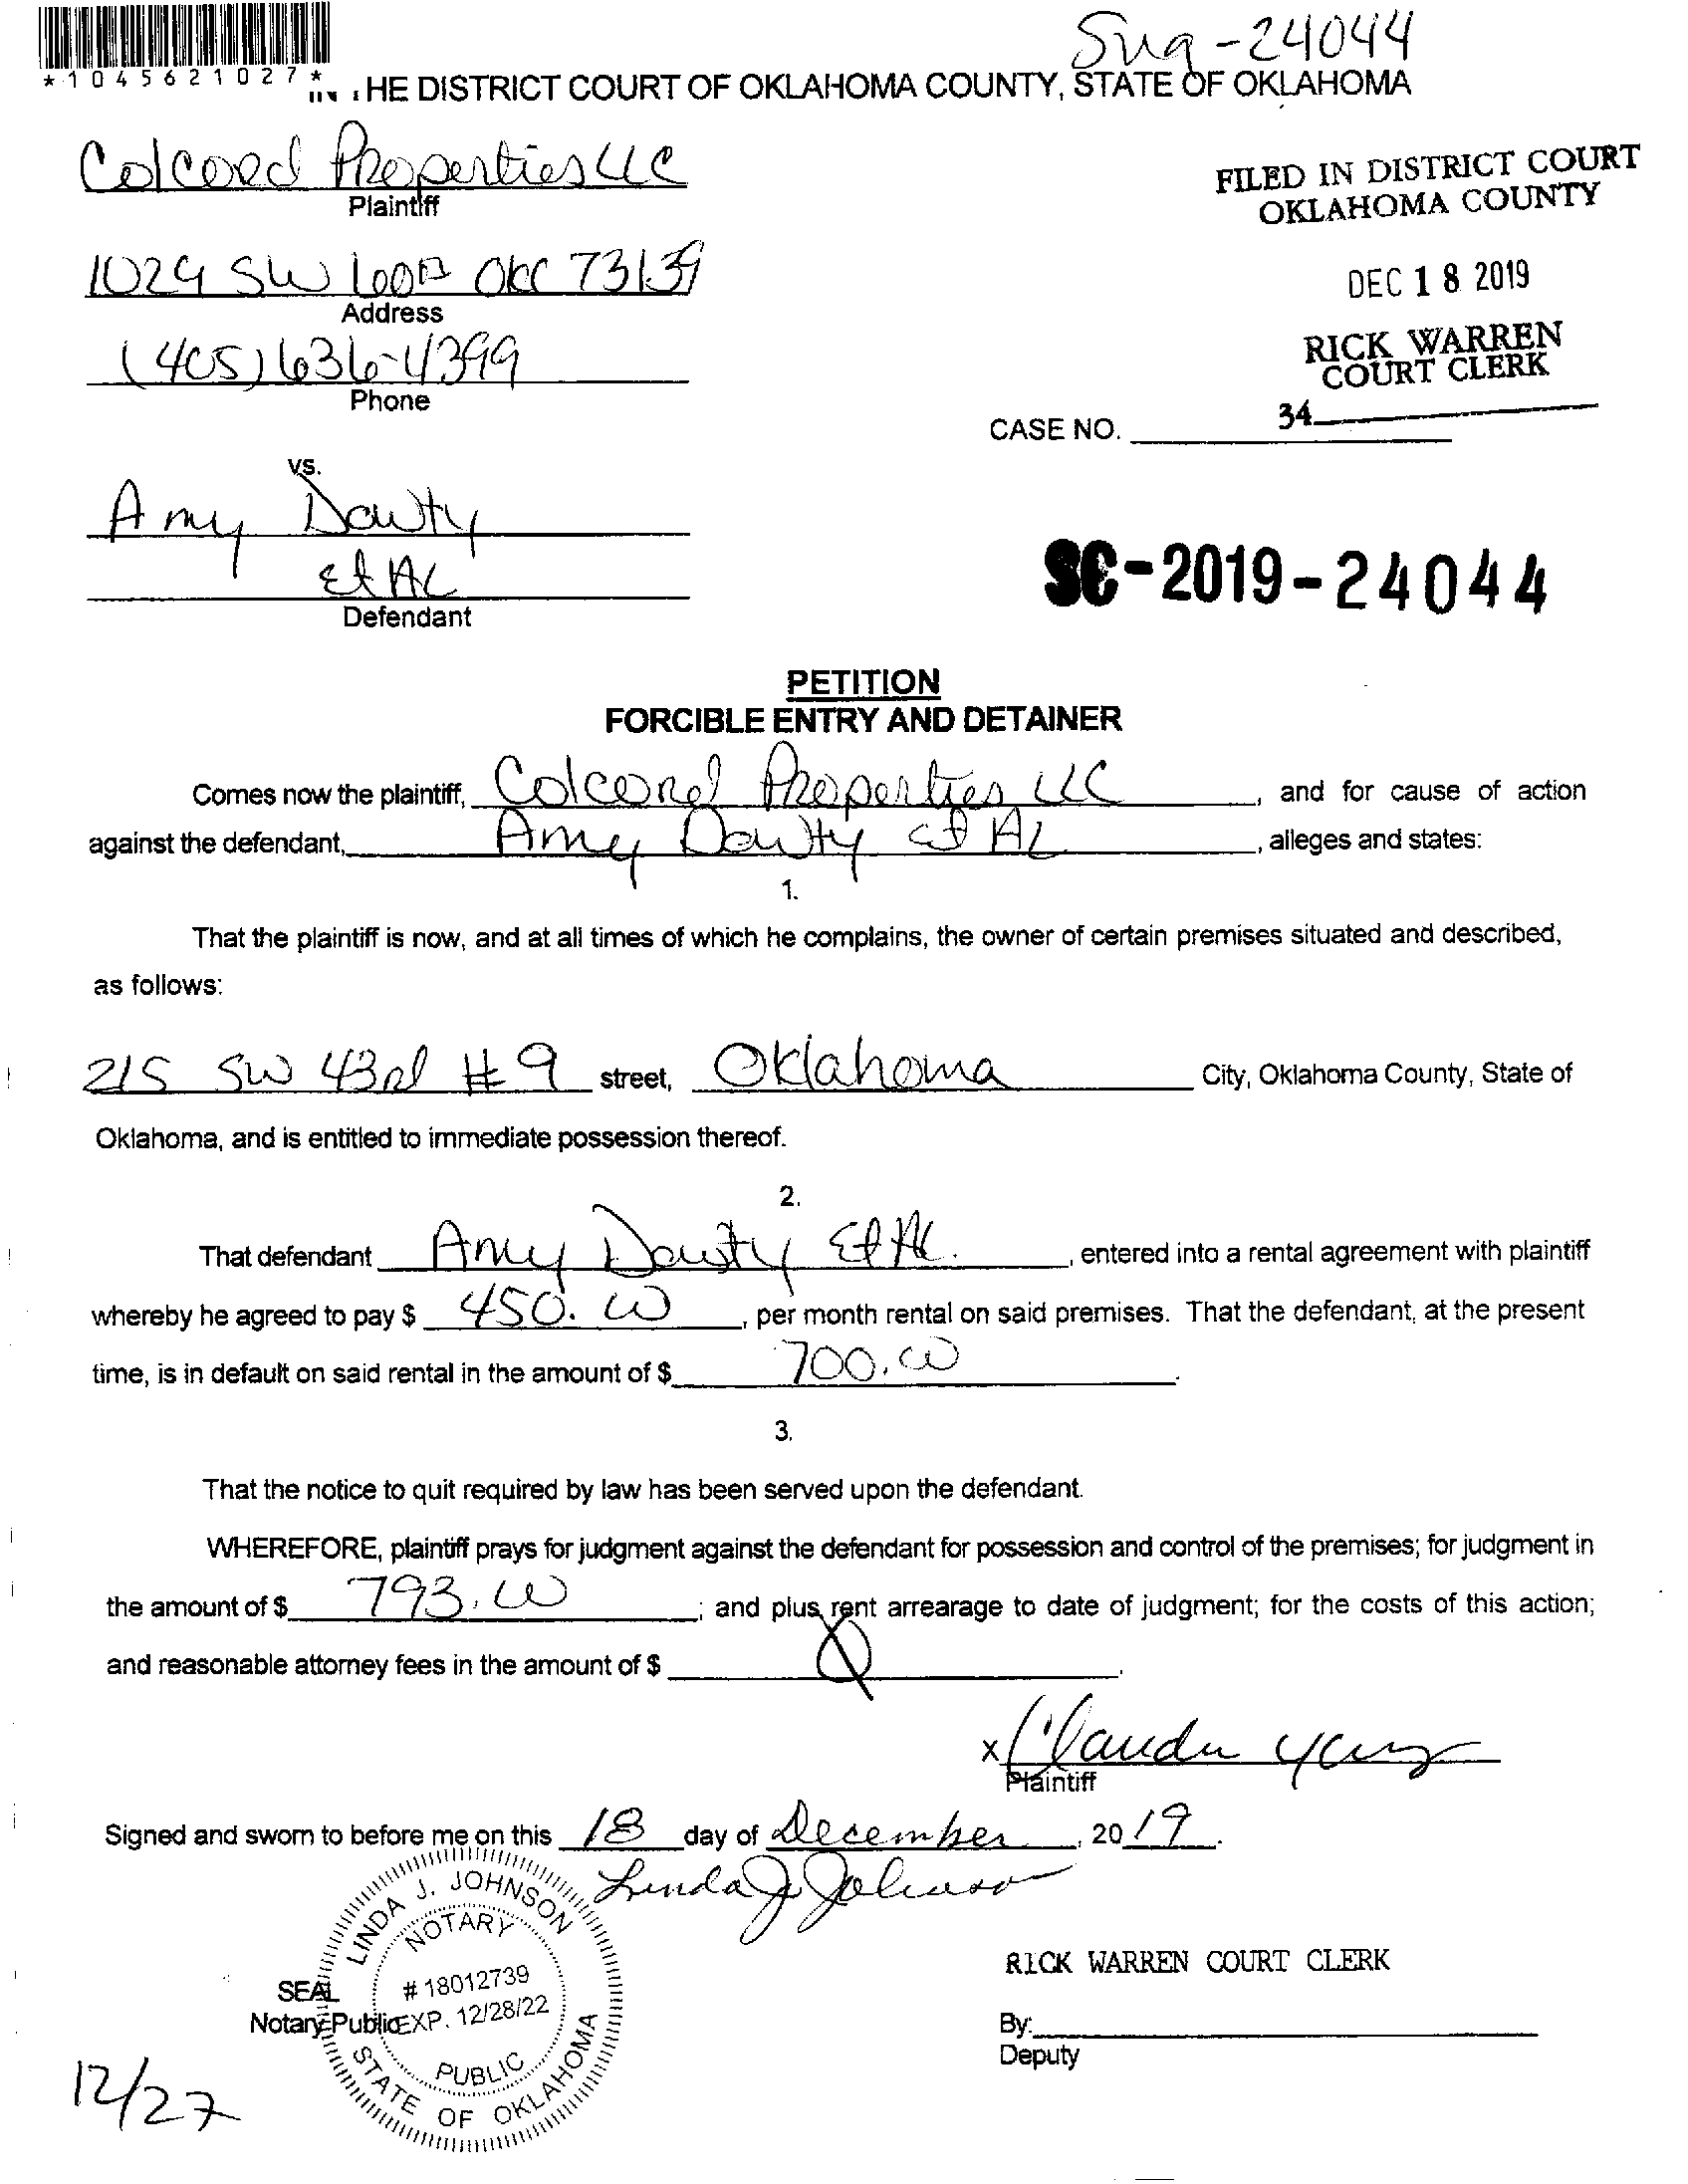 Sug-24044
*1045621027*
IN THE DISTRICT COURT OF OKLAHOMA COUNTY, STATE OF OKLAHOMA
Colcord Properties LLC
Plaintiff
FILED IN DISTRICT COURT
OKLAHOMA COUNTY
1029 SW OKC 73139
Address
DEC 18 2019
(405) 636-4399
Phone
RICK WARREN
COURT CLERK
34
CASE NO.
vs.
Amy Dawty
Et AL
Defendant
SC-2019-24044
PETITION
FORCIBLE ENTRY AND DETAINER
Comes now the plaintiff, Colcord Properties LLC, and for cause of action
against the defendant, Amy Dawty et AL, alleges and states:
1.
That the plaintiff is now, and at all times of which he complains, the owner of certain premises situated and described,
as follows:
215 SW 43rd #9 street, Oklahoma City, Oklahoma County, State of
Oklahoma, and is entitled to immediate possession thereof.
2.
That defendant Amy Dawty Et AL., entered into a rental agreement with plaintiff
whereby he agreed to pay $ 450.00, per month rental on said premises. That the defendant, at the present
time, is in default on said rental in the amount of $ 700.00.
3.
That the notice to quit required by law has been served upon the defendant.
WHEREFORE, plaintiff prays for judgment against the defendant for possession and control of the premises; for judgment in
the amount of $ 793.00; and plus rent arrearage to date of judgment; for the costs of this action;
and reasonable attorney fees in the amount of $
x Claudia
Plaintiff
Signed and sworn to before me on this 18 day of December, 2019.
Linda J Johnson
LINDA J. JOHNSON
NOTARY
# 18012739
EXP. 12/28/22
PUBLIC
STATE OF OKLAHOMA
SEAL
Notary Public
RICK WARREN COURT CLERK
By:
Deputy
12/27